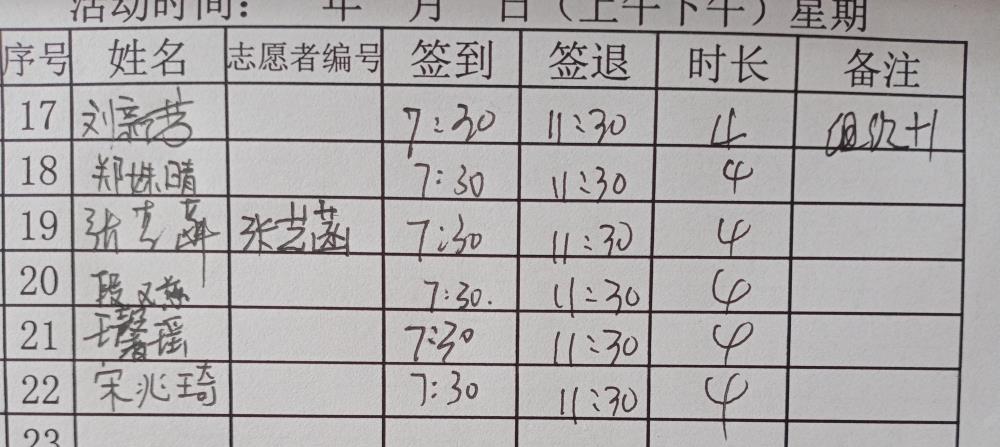 活动时间: 年 月 日（上午下午）星期
序号 姓名 志愿者编号 签到 签退 时长 备注
17 刘新芸 7:30 11:30 4 +1
18 郑姝晴 7:30 11:30 4
19 张 张艺涵 7:30 11:30 4
20 段又 7:30. 11:30 4
21 王馨瑶 7:30 11:30 4
22 宋兆琦 7:30 11:30 4
23